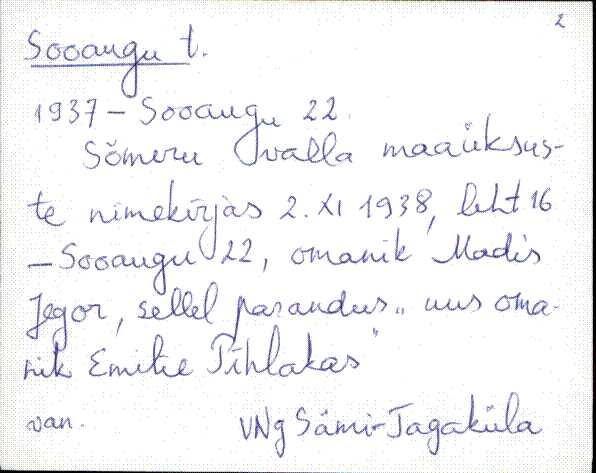 2
Sooaugu t.
1937 – Sooaugu 22.
Sõmeru valla maaüksus-
te nimekirjas 2. XI 1938, leht 16
– Sooaugu 22, omanik Madis
Jegor, sellel parandus „uus oma-
nik Emilie Pihlakas"
van. VNg Sämi-Tagaküla